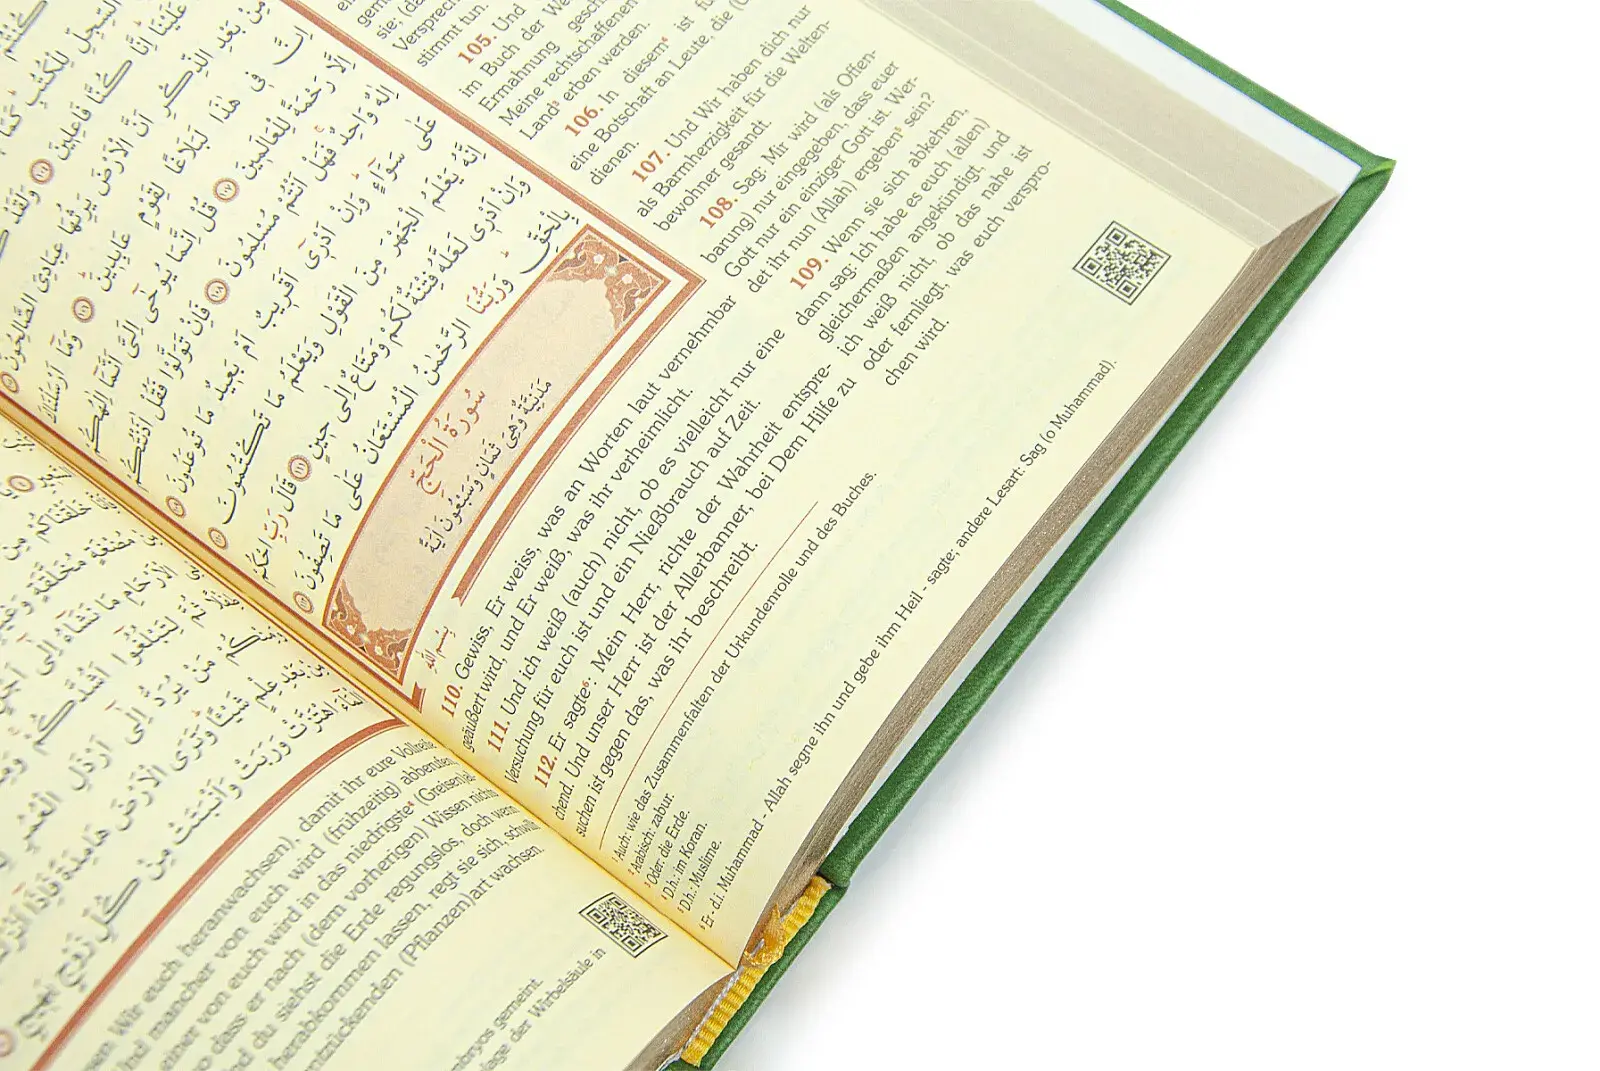 السِّجِلِّ لِلْكُتُبِ كَمَا
عَلَيْنَا إِنَّا كُنَّا فَاعِلِينَ ١٠٤ وَلَقَدْ
مِنْ بَعْدِ الذِّكْرِ أَنَّ الْأَرْضَ يَرِثُهَا عِبَادِيَ الصَّالِحُونَ
إِنَّ فِي هَٰذَا لَبَلَاغًا لِقَوْمٍ عَابِدِينَ ١٠٦ وَمَا أَرْسَلْنَاكَ
إِلَّا رَحْمَةً لِلْعَالَمِينَ ١٠٧ قُلْ إِنَّمَا يُوحَىٰ إِلَيَّ أَنَّمَا إِلَٰهُكُمْ
إِلَٰهٌ وَاحِدٌ فَهَلْ أَنْتُمْ مُسْلِمُونَ ١٠٨ فَإِنْ تَوَلَّوْا فَقُلْ آذَنْتُكُمْ
عَلَىٰ سَوَاءٍ وَإِنْ أَدْرِي أَقَرِيبٌ أَمْ بَعِيدٌ مَا تُوعَدُونَ ١٠٩
إِنَّهُ يَعْلَمُ الْجَهْرَ مِنَ الْقَوْلِ وَيَعْلَمُ مَا تَكْتُمُونَ ١١٠
وَإِنْ أَدْرِي لَعَلَّهُ فِتْنَةٌ لَكُمْ وَمَتَاعٌ إِلَىٰ حِينٍ ١١١ قَالَ رَبِّ احْكُمْ
بِالْحَقِّ وَرَبُّنَا الرَّحْمَٰنُ الْمُسْتَعَانُ عَلَىٰ مَا تَصِفُونَ ١١٢
سُورَةُ الْحَجِّ
مَدَنِيَّةٌ وَهِيَ ثَمَانٍ وَسَبْعُونَ آيَةً
بِسْمِ اللَّهِ
Versprech
stimmt tun.
105. Und
im Buch der We
Ermahnung gesch
Meine rechtschaffenen
Land³ erben werden.
106. In diesem⁴ ist fü
eine Botschaft an Leute, die (
dienen.
107. Und Wir haben dich nur
als Barmherzigkeit für die Welten-
bewohner gesandt.
108. Sag: Mir wird (als Offen-
barung) nur eingegeben, dass euer
Gott nur ein einziger Gott ist. Wer-
det ihr nun (Allah) ergeben⁵ sein?
109. Wenn sie sich abkehren,
dann sag: Ich habe es euch (allen)
gleichermaßen angekündigt, und
ich weiß nicht, ob das nahe ist
oder fernliegt, was euch verspro-
chen wird.
110. Gewiss, Er weiss, was an Worten laut vernehmbar
geäußert wird, und Er weiß, was ihr verheimlicht.
111. Und ich weiß (auch) nicht, ob es vielleicht nur eine
Versuchung für euch ist und ein Nießbrauch auf Zeit.
112. Er sagte⁶: Mein Herr, richte der Wahrheit entspre-
chend. Und unser Herr ist der Allerbarmer, bei Dem Hilfe zu
suchen ist gegen das, was ihr beschreibt.
¹ Auch: wie das Zusammenfalten der Urkundenrolle und des Buches.
² Arabisch: zabur.
³ Oder: die Erde.
⁴ D.h.: im Koran.
⁵ D.h.: Muslime.
⁶ Er - d.i. Muhammad - Allah segne ihn und gebe ihm Heil - sagte; andere Lesart: Sag (o Muhammad).
خَلَقْنَاكُمْ مِنْ
مُضْغَةٍ مُخَلَّقَةٍ وَغَيْرِ
الْأَرْحَامِ مَا نَشَاءُ إِلَىٰ أَجَلٍ
ثُمَّ لِتَبْلُغُوا أَشُدَّكُمْ
مَنْ يُرَدُّ إِلَىٰ أَرْذَلِ الْعُمُرِ
بَعْدِ عِلْمٍ شَيْئًا وَتَرَى الْأَرْضَ هَامِدَةً فَإِذَا
اهْتَزَّتْ وَرَبَتْ وَأَنْبَتَتْ مِنْ كُلِّ زَوْجٍ بَهِيجٍ
en Wir euch heranwachsen), damit ihr eure Vollreife
Und mancher von euch wird (frühzeitig) abberufen,
einer von euch wird in das niedrigste⁴ (Greisen)al
o dass er nach (dem vorherigen) Wissen nichts
nd du siehst die Erde regungslos, doch wenn
herabkommen lassen, regt sie sich, schwillt
ntzückenden (Pflanzen)art wachsen.
mbryos gemeint.
lage der Wirbelsäule in